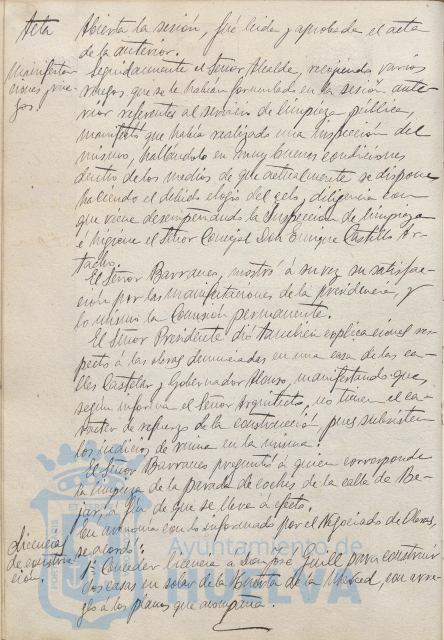 Acta
Abierta la sesión, fué leida y aprobada el acta
de la anterior.
Manifestaciones y ruegos.
Seguidamente el Señor Alcalde, recojiendo varios
ruegos que se le habian formulado en la sesión ante-
rior referentes al servicio de limpieza pública,
manifestó que habia realizado una inspección del
mismo, hallándolo en muy buenas condiciones
dentro de los medios de que actualmente se dispone
haciendo el debido elogio del celo, diligencia con
que viene desempeñando la Inspección de limpieza
é higiene el Señor Concejal Don Enrique Castillo Ar-
tacho.
El Señor Barranco, mostró á su vez su satisfac-
ción por las manifestaciones de la presidencia, y
lo mismo la Comisión permanente.
El Señor Presidente dió también explicaciones res-
pecto á las obras denunciadas en una casa de las ca-
lles Castelar y Gobernador Alonso, manifestando que,
según informa el Señor Arquitecto, no tienen el ca-
racter de refuerzo de la construcción, pues subsisten
los indicios de ruina en la misma.
El Señor Barranco preguntó á quien corresponde
la limpieza de la parada de coches de la calle de Be-
jar, á fin de que se lleve á efecto.
Licencias de construcción.
En armonia con lo informado por el Negociado de Obras,
se acordó:
1º Conceder licencia a Don José Guill para construir
dos casas en solar de la Huerta de la Merced, con arre-
glo a los planos que acompaña.
Ayuntamiento de
HUELVA